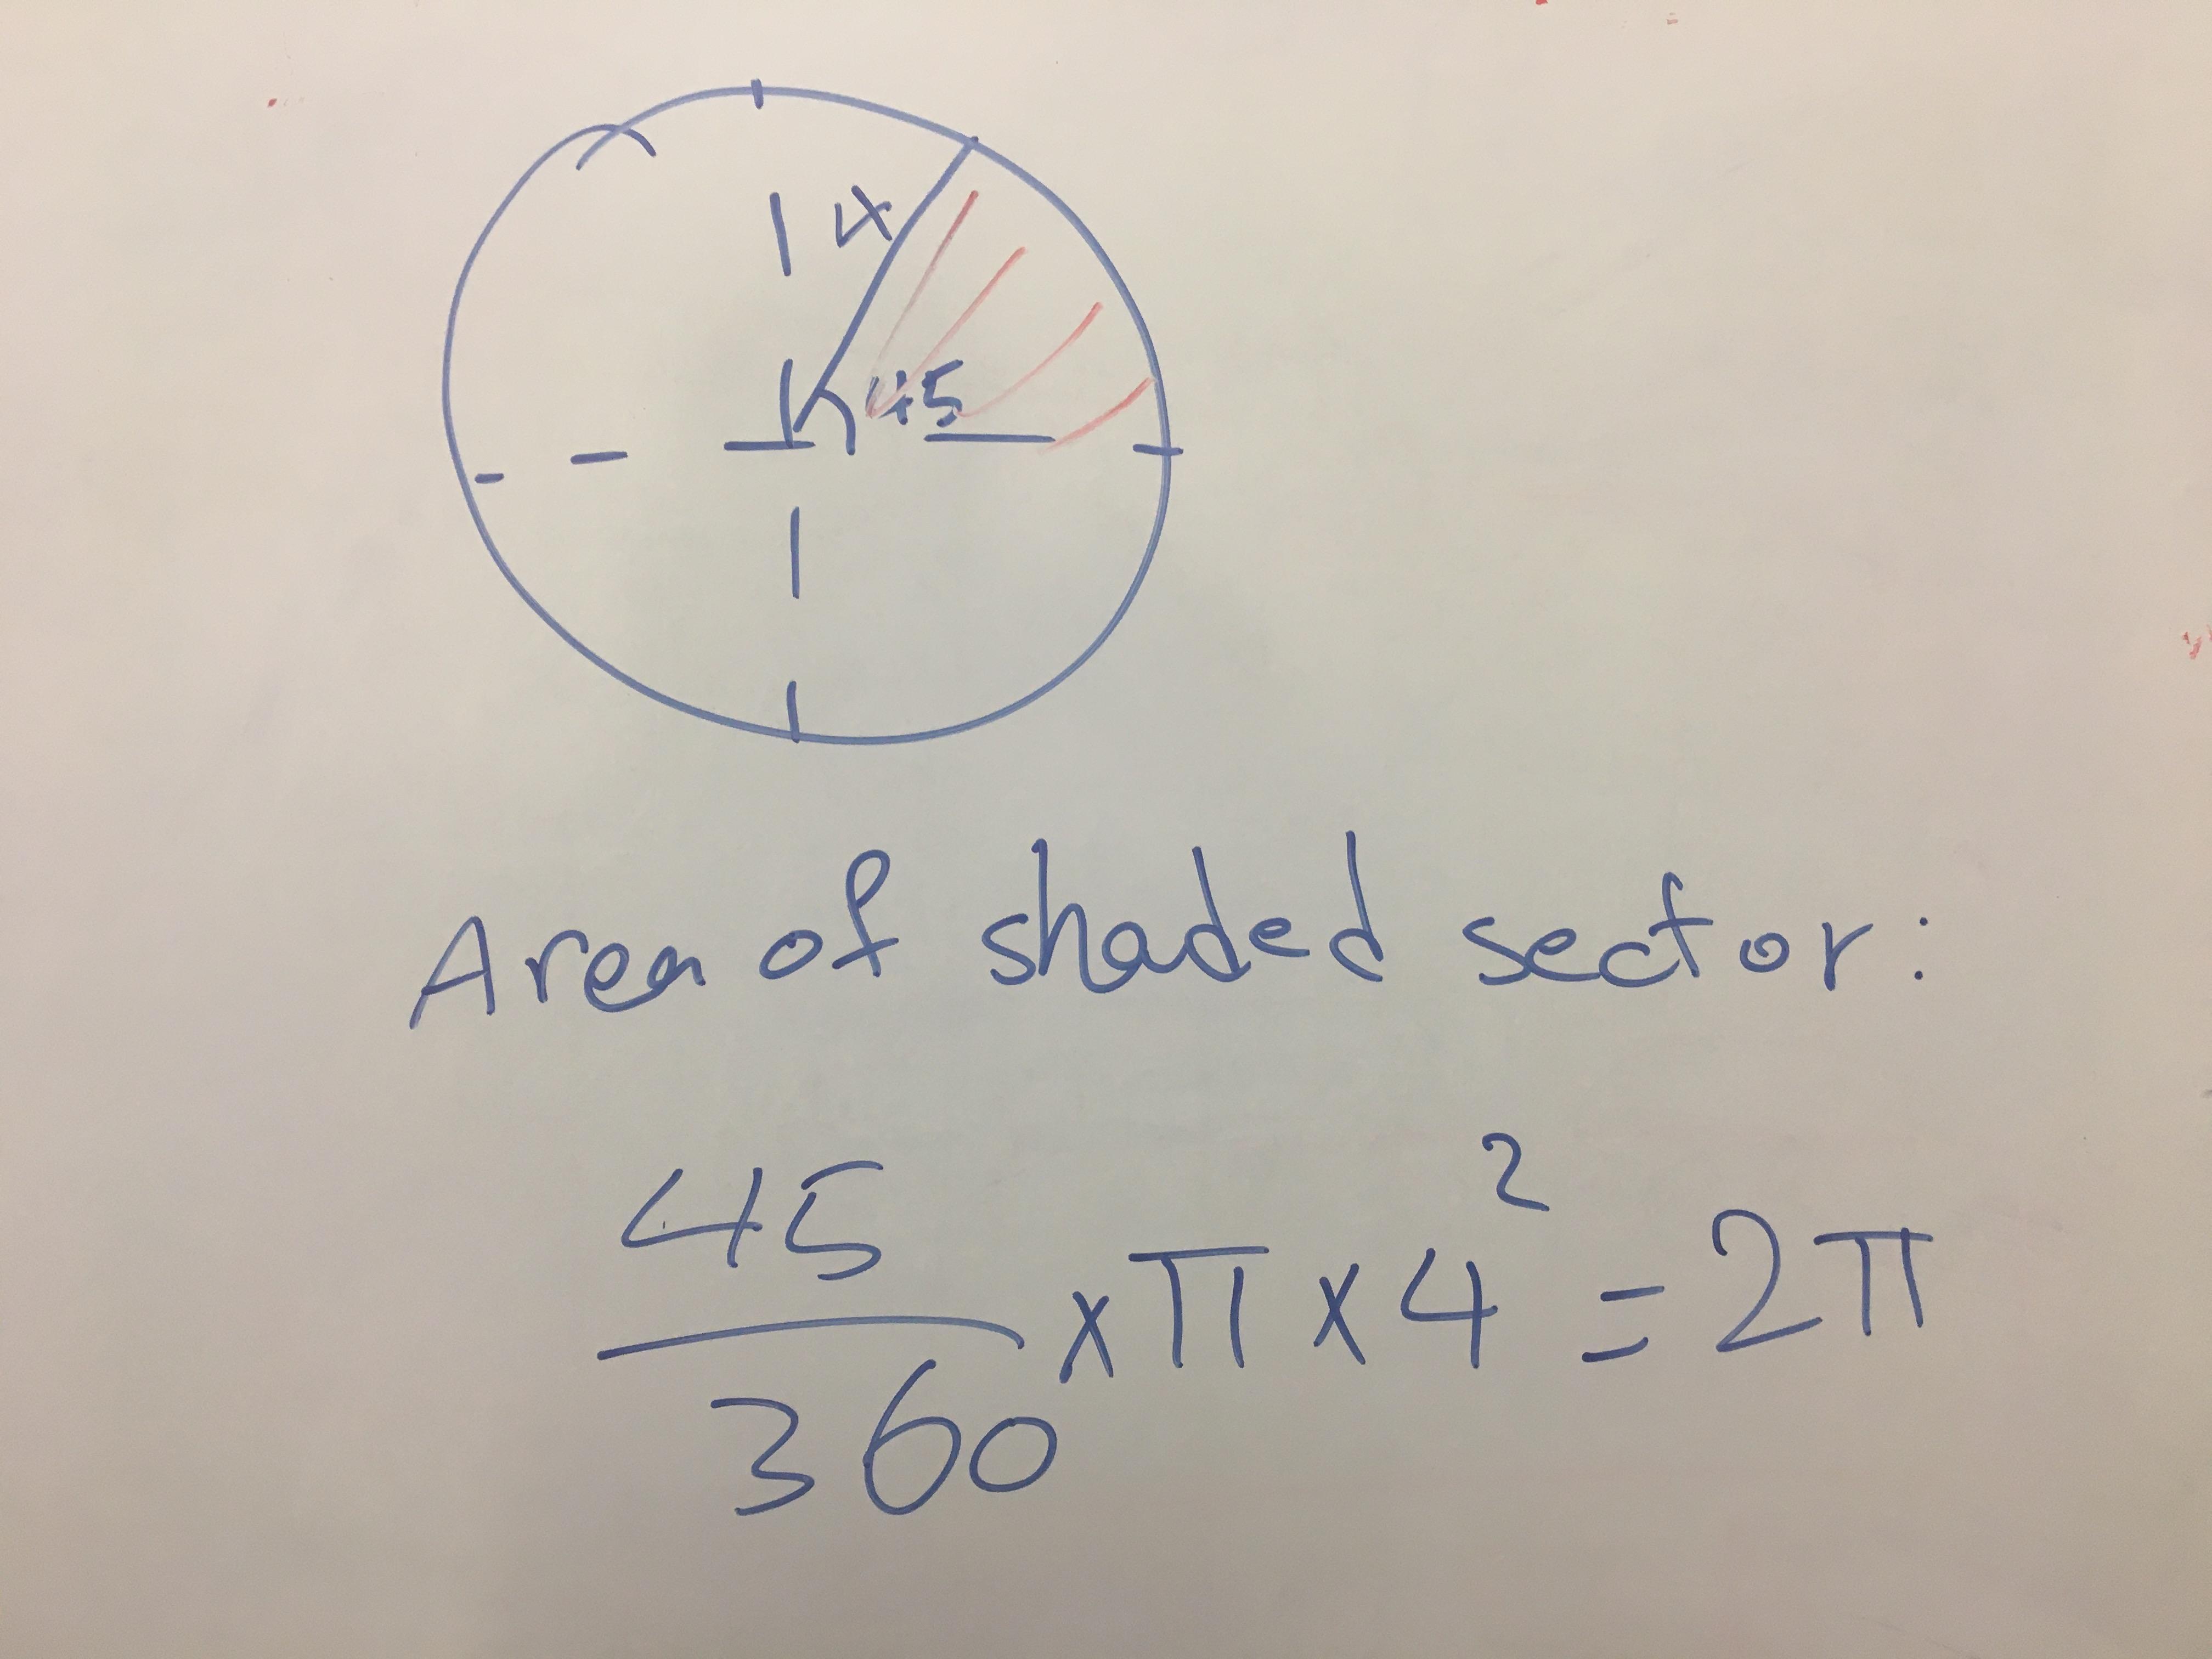 4
45
Area of shaded sector:
45
360
x π x 4² = 2π